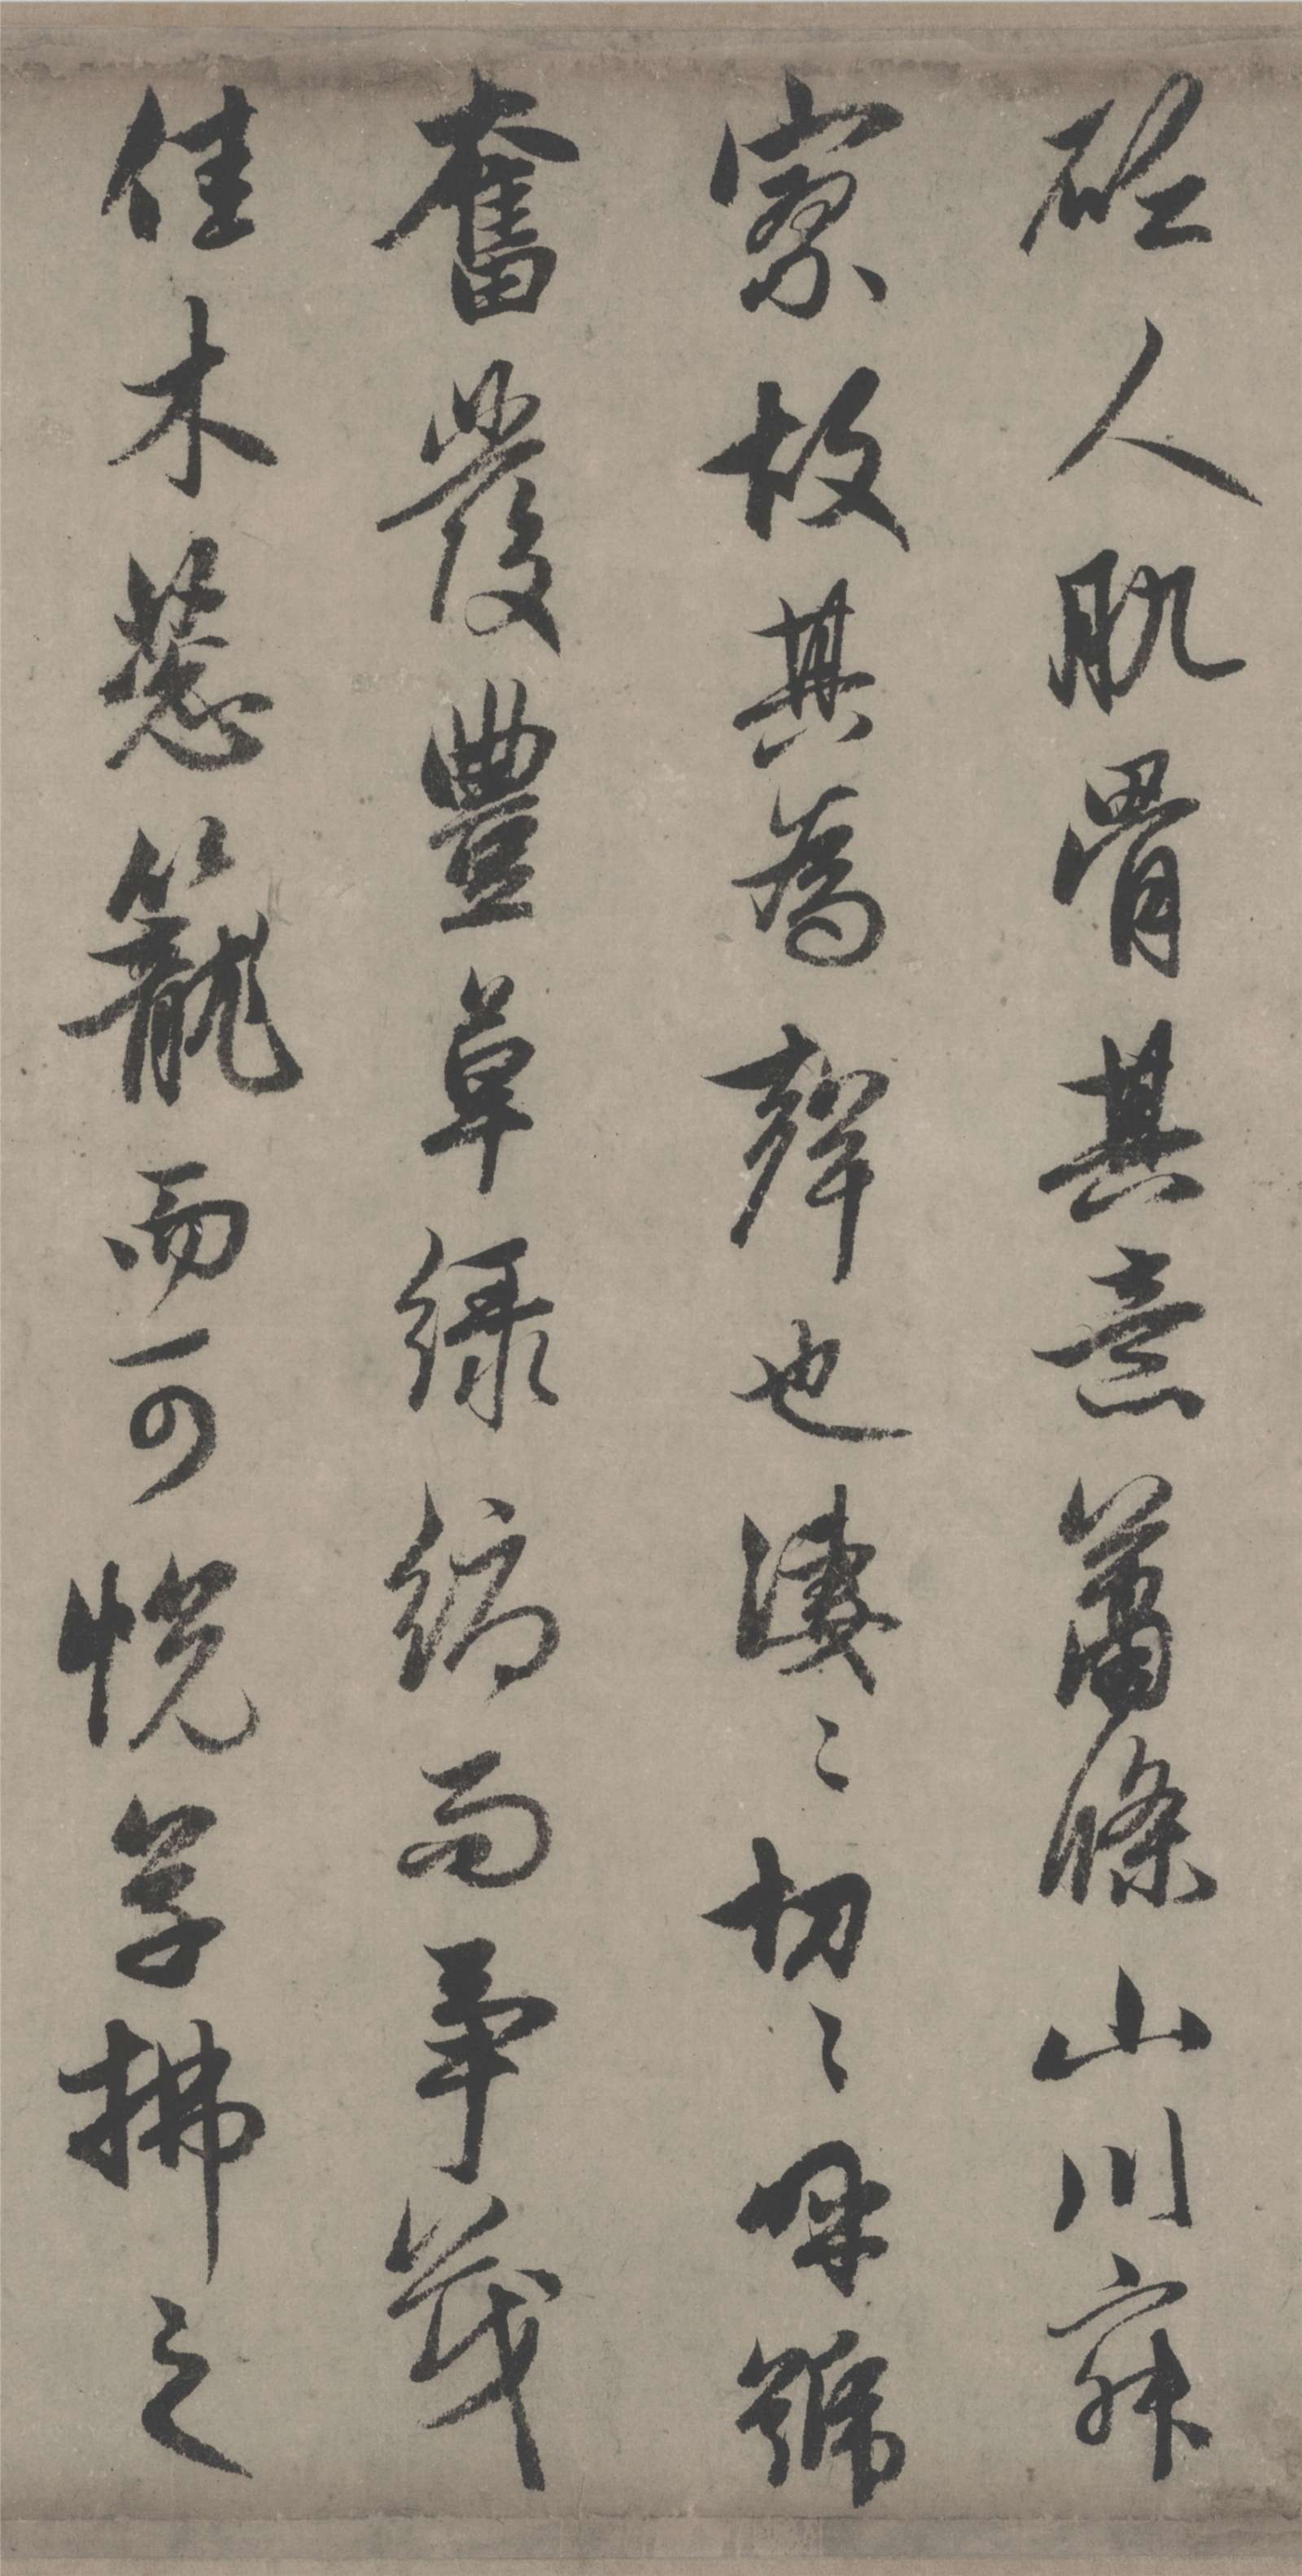 砭人肌骨其意蕭條山川寂
寥故其為聲也淒〻切〻呼號
奮發豐草綠縟而爭茂
佳木蔥籠而可悅草拂之